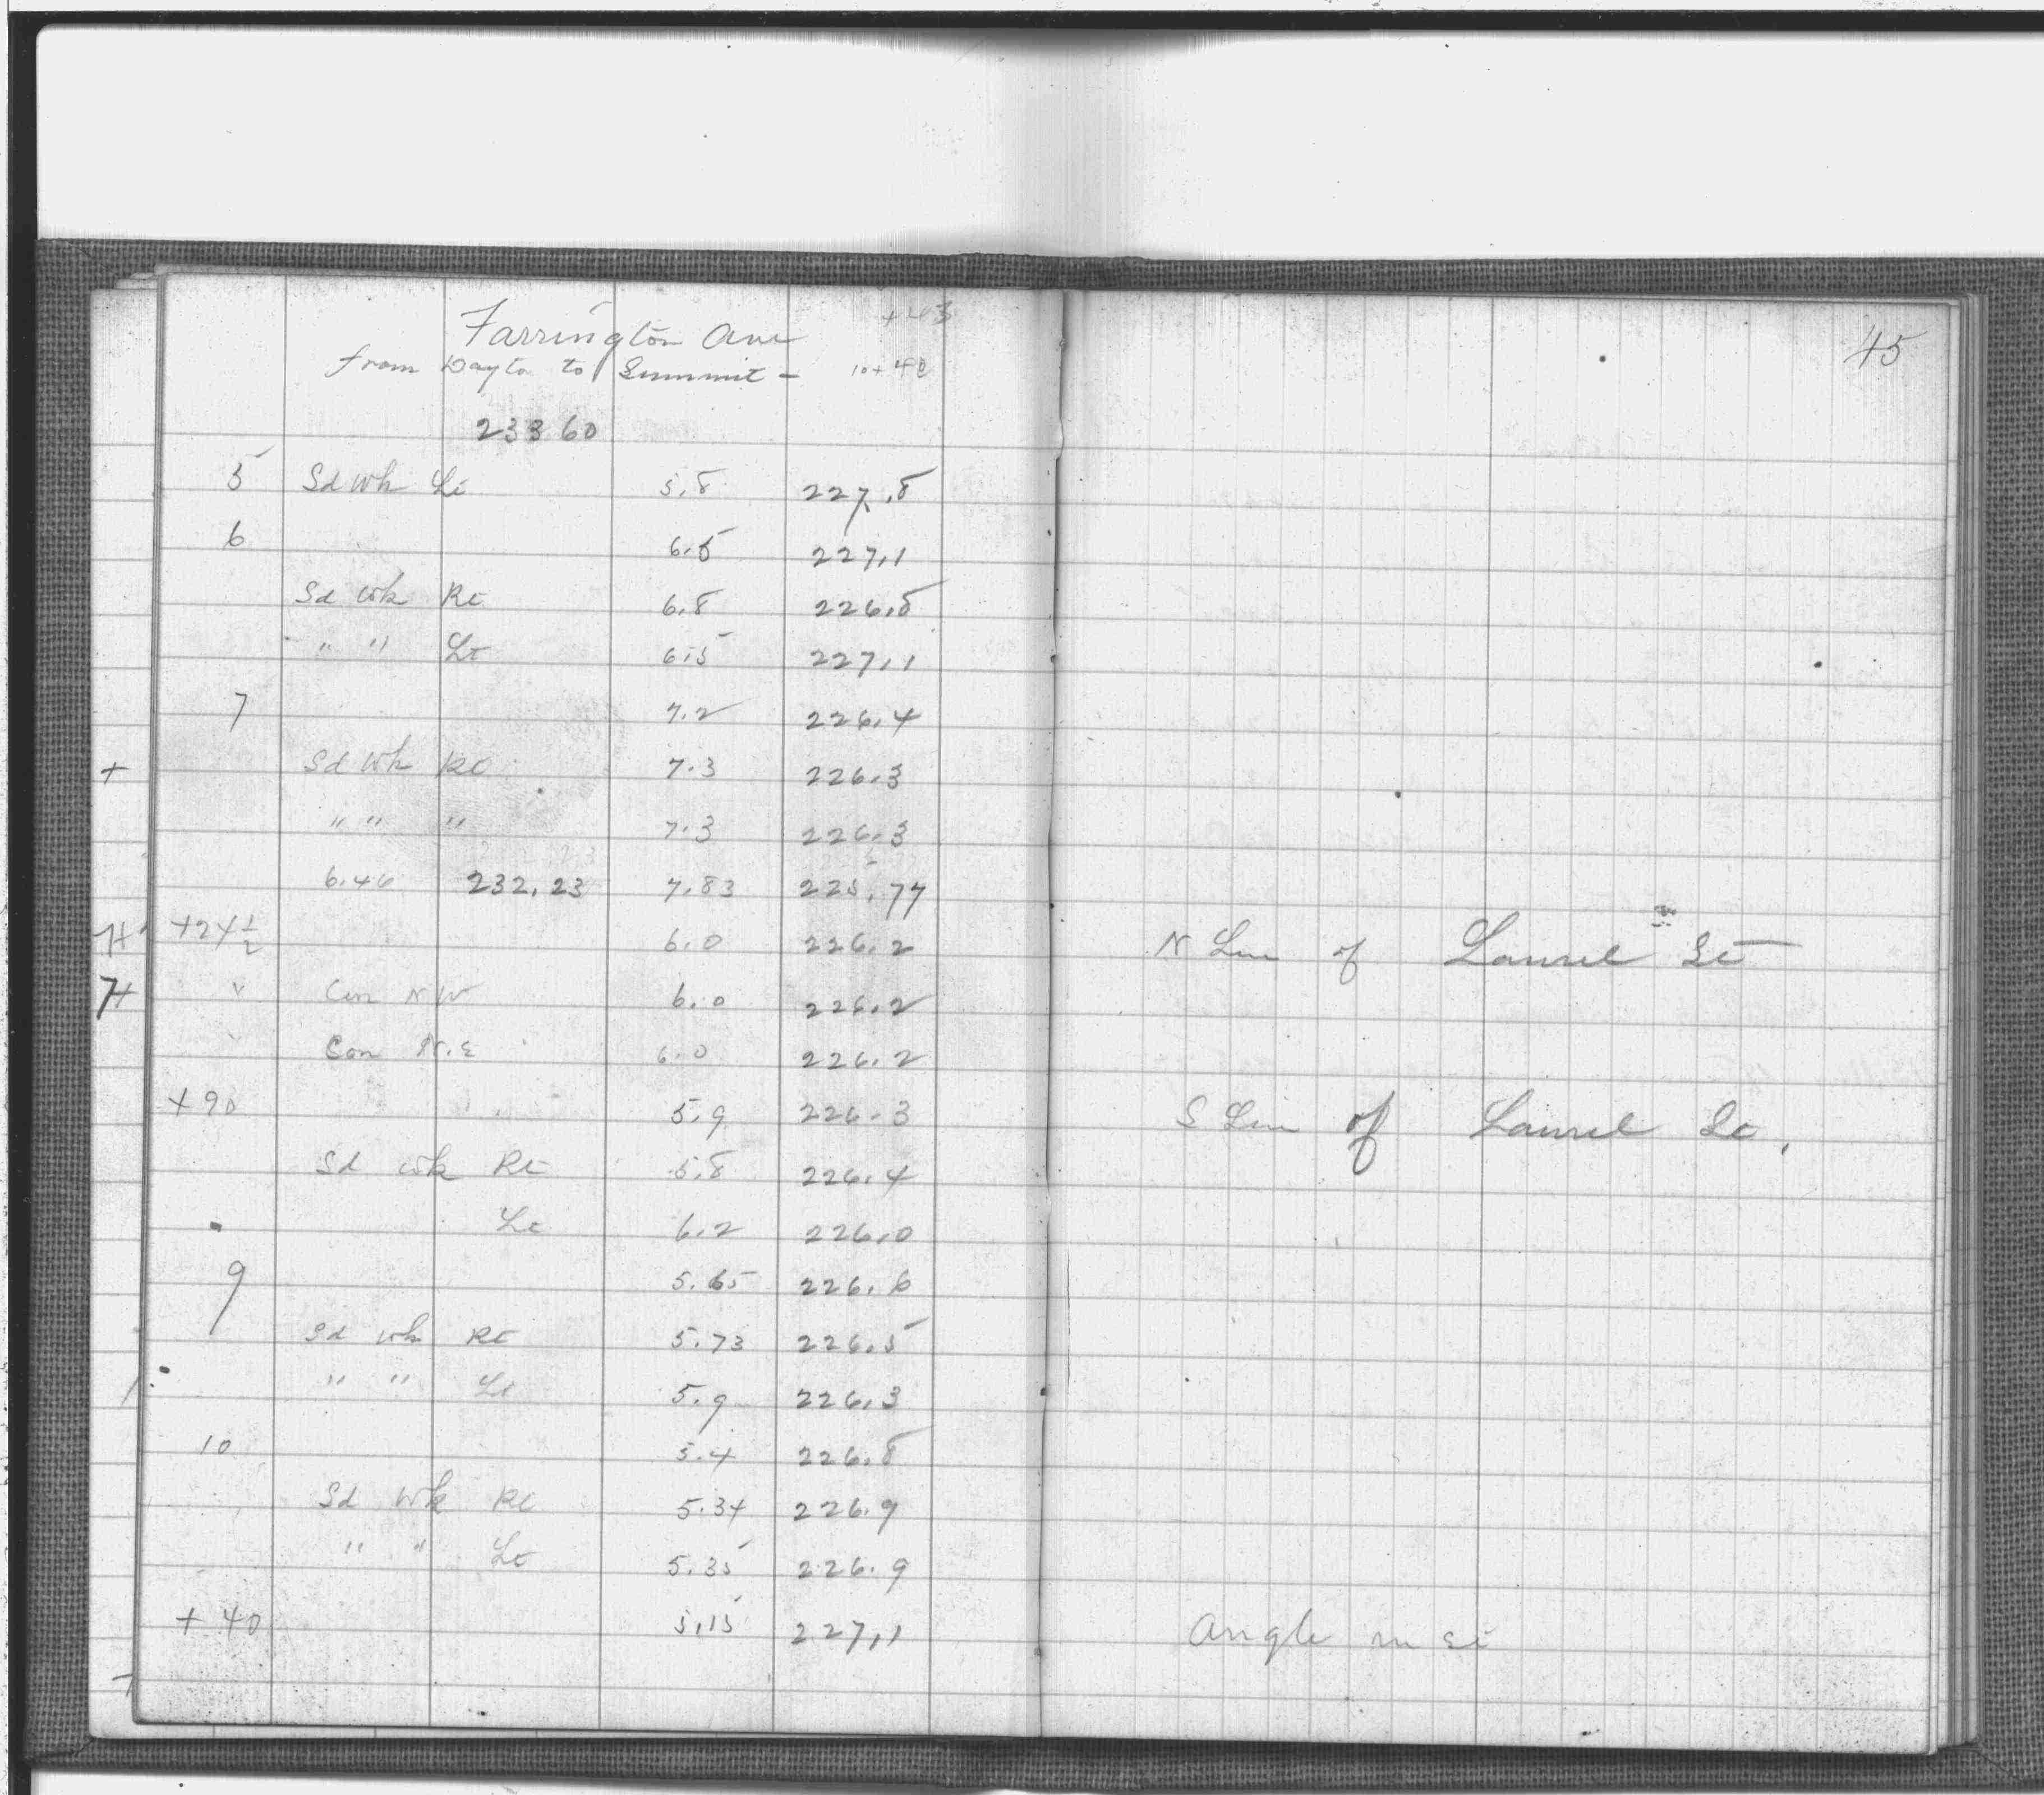 +43
Farrington Ave
from Dayton to Summit - 10+40
45
233 60
5 Sd Wk Lt 5.8 227.8
6 6.5 227.1
Sd Wk Rt 6.8 226.8
" " Lt 6.5 227.1
7 7.2 226.4
+ Sd Wk Rt 7.3 226.3
" " " 7.3 226.3
6.46 232.23 7.83 225.77
7+ +24 1/2 6.0 226.2 N Line of Laurel St
7+ " Cor N W 6.0 226.2
" Cor N.E 6.0 226.2
+90 5.9 226.3 S Line of Laurel St.
Sd Wk Rt 5.8 226.4
Lt 6.2 226.0
9 5.65 226.6
Sd Wk Rt 5.73 226.5
" " Lt 5.9 226.3
10 5.4 226.8
Sd Wk Rt 5.34 226.9
" " Lt 5.35 226.9
+40 5.15 227.1 Angle in St